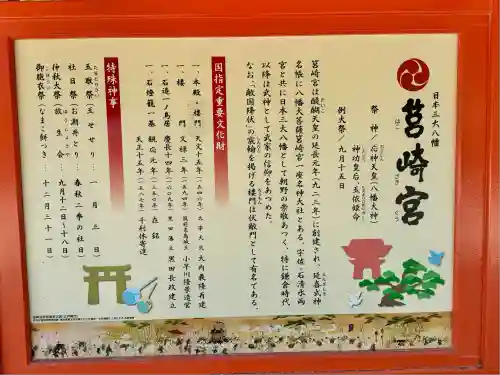 日本三大八幡
筥崎宮
はこ ざき ぐう
祭神／応神天皇(八幡大神)
神功皇后、玉依姫命
例大祭／九月十五日
筥崎宮は醍醐天皇の延長元年(九二三年)に創建され、延喜式神
名帳に八幡大菩薩筥崎宮一座名神大社とある。宇佐、石清水両
宮と共に日本三大八幡として朝野の崇敬あつく、特に鎌倉時代
以降は武神として武家の信仰をあつめた。
なお、「敵国降伏」の宸翰を掲げる楼門は伏敵門として有名である。
国指定重要文化財
一、本殿・拝殿 天文十五年(一五四六) 大内義隆再建
一、楼門 文禄三年(一五九四) 小早川隆景造営
一、石造一ノ鳥居 慶長十四年(一六〇九) 黒田長政建立
一、石燈籠一基 観応元年(一三五〇) 在銘
天正十五年(一五八七) 千利休寄進
特殊神事
玉取祭(玉せせり)…一月三日
社日祭(お潮井とり)…春秋二季の社日
仲秋大祭(放生会)…九月十二日〜十八日
御胞衣祭(なまこ餅つき)…十二月三十一日